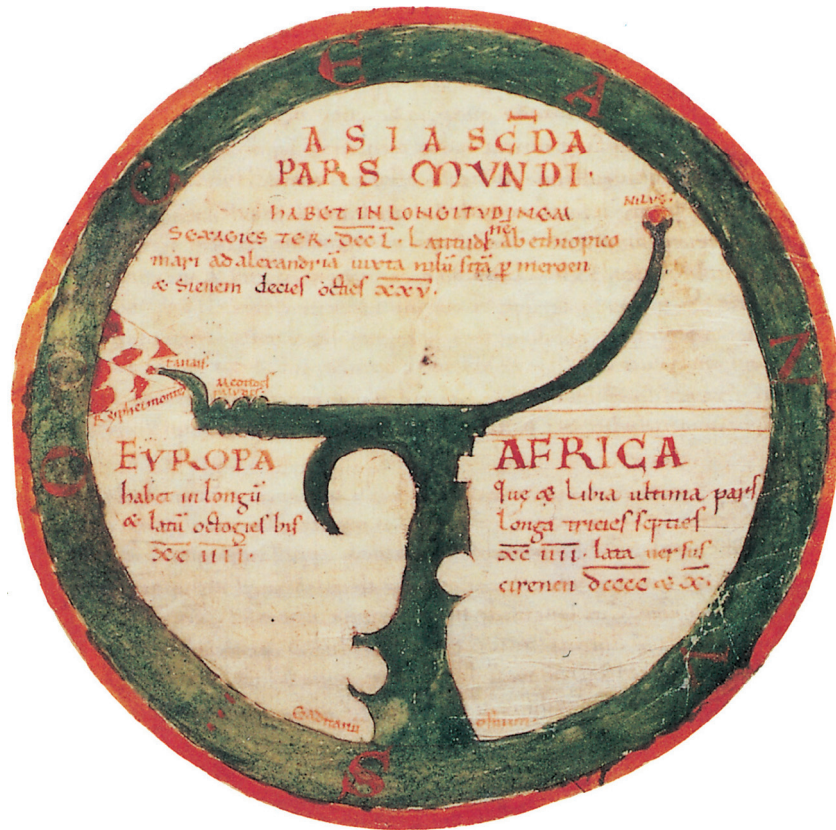 ASIA SC̄DA
PARS MVNDI·
NILVS·
HABET IN LONGITVDINEM
SEXAGIES TER· D̅C̅C̅ L̅· Latitudine ab ethiopico
mari ad alexandriā iuxta nilū sitā ꝑ meroen
& Sienem decies octies X̅X̅V̅·
tanais·
Meotides
paludes
Riphei montes
EVROPA
habet in longū
& latū octogies bis
X̅C̅ I̅I̅I̅I̅·
AFRICA
que & Libia ultima pars
Longa tricies septies
X̅C̅ I̅I̅I̅I̅· lata uersus
cirenen D̅C̅C̅C̅C̅ & X̅·
Gaditanū
ostium
E
A
Z
S
O
C